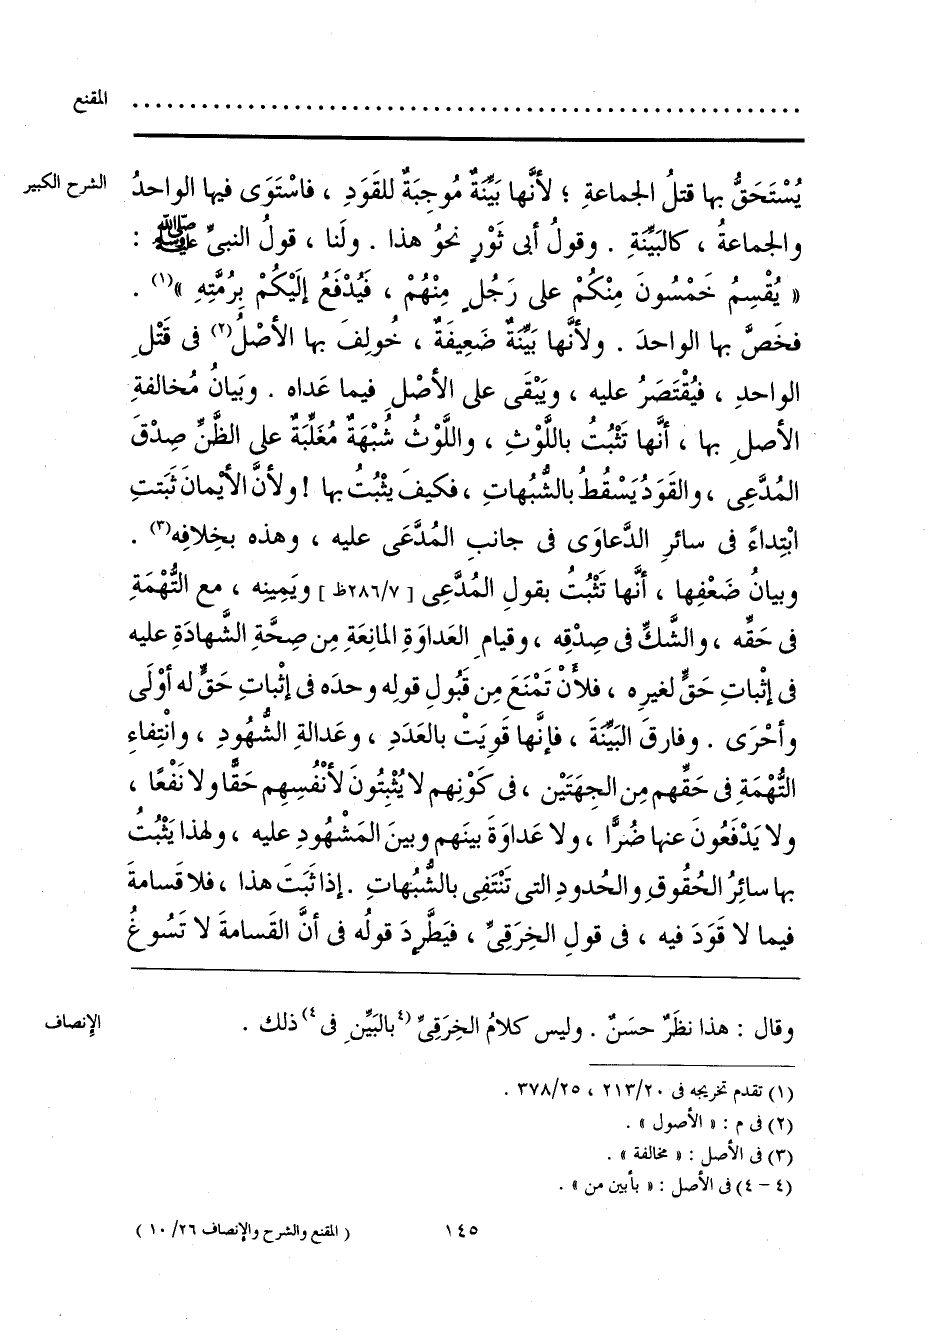 المقنع ..........................................................
الشرح الكبير يُسْتَحَقُّ بها قتلُ الجماعةِ ؛ لأنَّها بَيِّنَةٌ مُوجِبَةٌ للقَوَدِ ، فاسْتَوَى فيها الواحدُ
والجماعةُ ، كالبَيِّنَةِ . وقولُ أبى ثَوْرٍ نحوُ هذا . ولَنا ، قولُ النبىِّ ﷺ :
« يُقْسِمُ خَمْسُونَ مِنْكُمْ على رَجُلٍ مِنْهُمْ ، فَيُدْفَعُ إلَيْكُمْ بِرُمَّتِهِ »(١) .
فخَصَّ بها الواحدَ . ولأنَّها بَيِّنَةٌ ضَعِيفَةٌ ، خُولِفَ بها الأصْلُ(٢) فى قَتْلِ
الواحدِ ، فيُقْتَصَرُ عليه ، ويَبْقَى على الأصْلِ فيما عَداه . وبَيانُ مُخالفةِ
الأصلِ بها ، أنَّها تَثْبُتُ باللَّوْثِ ، واللَّوْثُ شُبْهَةٌ مُغَلِّبَةٌ على الظَّنِّ صِدْقَ
المُدَّعِى ، والقَوَدُ يَسْقُطُ بالشُّبُهاتِ ، فكيفَ يثْبُتُ بها ! ولأنَّ الأيْمانَ ثَبَتت
ابْتِداءً فى سائرِ الدَّعاوَى فى جانبِ المُدَّعَى عليه ، وهذه بخِلافِه(٣) .
وبيانُ ضَعْفِها ، أنَّها تَثْبُتُ بقولِ المُدَّعِى [ ٢٨٦/٧ظ ] ويَمِينِه ، مع التُّهْمَةِ
فى حَقِّه ، والشَّكِّ فى صِدْقِه ، وقيامِ العَداوَةِ المانِعَةِ مِن صِحَّةِ الشَّهادَةِ عليه
فى إثْباتِ حَقٍّ لغيرِه ، فلأَنْ تَمْنَعَ مِن قَبُولِ قولِه وحدَه فى إثْباتِ حَقٍّ له أوْلَى
وأحْرَى . وفارقَ البَيِّنَةَ ، فإنَّها قَوِيَتْ بالعَدَدِ ، وعَدالةِ الشُّهُودِ ، وانْتِفاءِ
التُّهْمَةِ فى حَقِّهم مِن الجِهَتَيْن ، فى كَوْنِهم لا يُثْبِتُونَ لأنْفُسِهم حَقًّا ولا نَفْعًا ،
ولا يَدْفَعُونَ عنها ضُرًّا ، ولا عَداوَةَ بينَهم وبينَ المَشْهُودِ عليه ، ولهذا يَثْبُتُ
بها سائرُ الحُقُوقِ والحُدودِ التى تَنْتَفِى بالشُّبُهاتِ . إذا ثَبَتَ هذا ، فلا قَسامةَ
فيما لا قَوَدَ فيه ، فى قولِ الخِرَقِىِّ ، فيَطَّرِدَ قولُه فى أنَّ القَسامةَ لا تَسُوغُ
الإنصاف وقال : هذا نظَرٌ حسَنٌ . وليس كلامُ الخِرَقِىِّ (٤بالبَيِّنِ فى٤) ذلك .
(١) تقدم تخريجه فى ٢١٣/٢٠ ، ٣٧٨/٢٥ .
(٢) فى م : « الأصول » .
(٣) فى الأصل : « مخالفة » .
(٤ – ٤) فى الأصل : « بأبين من » .
١٤٥ ( المقنع والشرح والإنصاف ١٠/٢٦ )